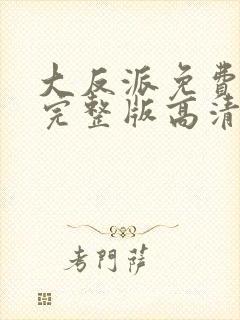 大反派免费
完整版高清
考門薩